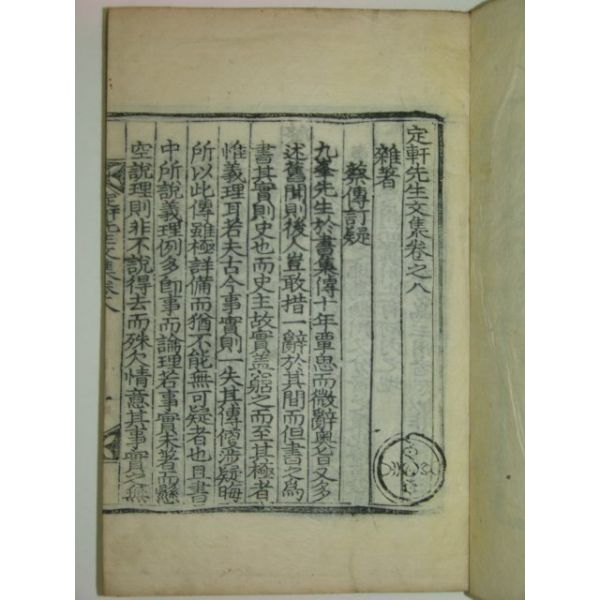 定軒先生文集卷之八
雜著
蔡傳訂疑
九峯先生於書集傳十年覃思而微辭奧旨又多
述舊聞則後人豈敢措一辭於其間而但書之爲
書其實則史也而史主故實盖窮之而至其極者
惟義理耳若夫古今事實則一失其傳偕涉疑晦
所以此傳雖極詳備而猶不能無可疑者也且書
中所說義理例多卽事而論理若事實未著而懸
空說理則非不說得去而殊欠情意其事實之無
定軒先生文集卷八